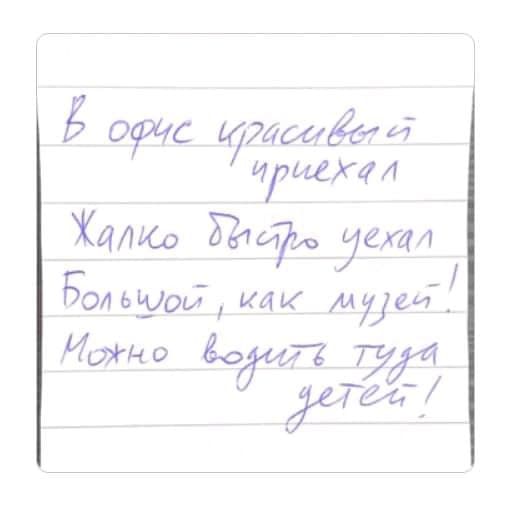 В офис красивый
приехал
Жалко быстро уехал
Большой, как музей!
Можно водить туда
детей!